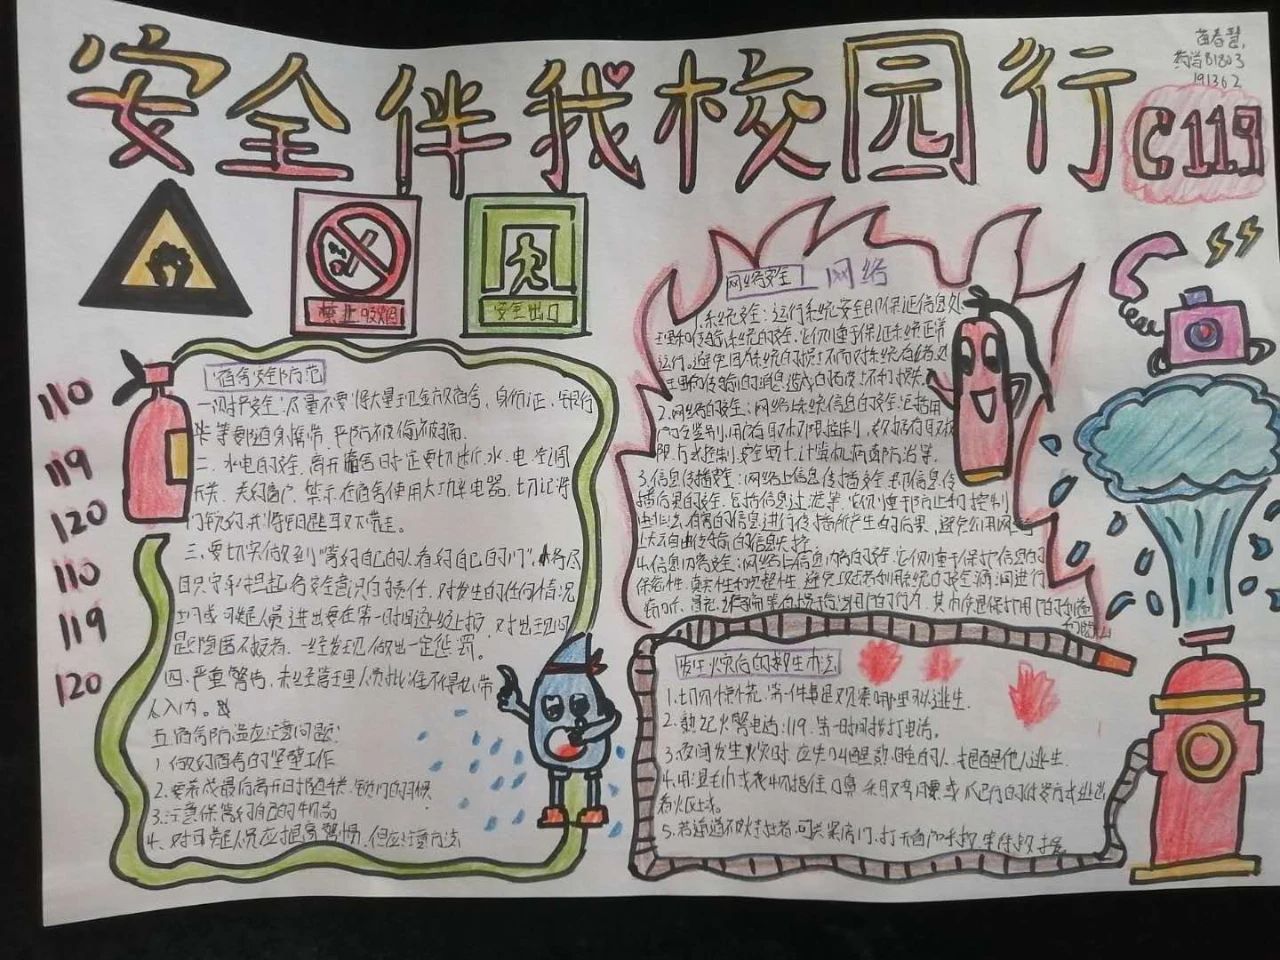 安全伴我校园行
苗春慧
药学B1803
191362
C119
禁止吸烟
安全出口
110
119
120
110
119
120
宿舍安全防范
一、财产安全:尽量不要将大量现金放宿舍、身份证、银行
卡等要随身携带,严防被偷被骗。
二、水电的安全,离开宿舍时一定要切断水、电、空调
开关、关好窗户、禁示在宿舍使用大功率电器,切记将
门锁好并将钥匙取下带走。
三、要切实做到“管好自己的人看好自己的门”,将尽
自己职守承担起有安全意识的责任,对发生的任何情况
可疑人员进出要在第一时间送经上报,对出现问
题隐匿不报者,一经发现做出一定惩罚。
四、严重警告,未经管理人员批准不得私带
人入内。
五、宿舍防盗应注意问题:
1、做好宿舍的坚壁工作
2、要养成最后离开时随手关、锁门的习惯
3、注意保管好自己的物品
4、对可疑人员应提高警惕,但应注意方法
网络安全 网络
1.系统安全:运行系统安全即保证信息处
理和传输系统的安全,它侧重于保证系统正常
运行,避免因为系统的损坏而对系统存储、处
理和传输的消息造成
2.网络的安全:网络上系统信息的安全,包括用
户口令鉴别,用户存取权限控制,数据存取权
限、方式控制,安全审计,计算机病毒防治等。
3.信息传播安全:网络上信息传播安全,即信息传
播后果的安全,包括信息过滤等,它侧重于防止和控制
由非法、有害的信息进行传播所产生的后果,避免公用网络
上大云自由传输的信息失控
4.信息内容安全:网络上信息内容的安全,它侧重于保护信息的
保密性、真实性和完整性,避免攻击者利用系统的安全漏洞进行
窃听、冒充、诈骗等有损于合法用户的行为,其本质是保护用户的利益
和隐私
发生火灾后的救生办法
1.切勿惊慌,第一件事是观察哪里以逃生.
2.熟记火警电话:119,第一时间拨打电话。
3.夜间发生火灾时,应先叫醒熟睡的人,提醒他人逃生.
4.用湿毛巾或衣物捂住口鼻,采用弯腰或爬行的付势方式逃出
着火区域.
5.若通道不被火封者,可关紧房门,打开窗户呼救,等待救援